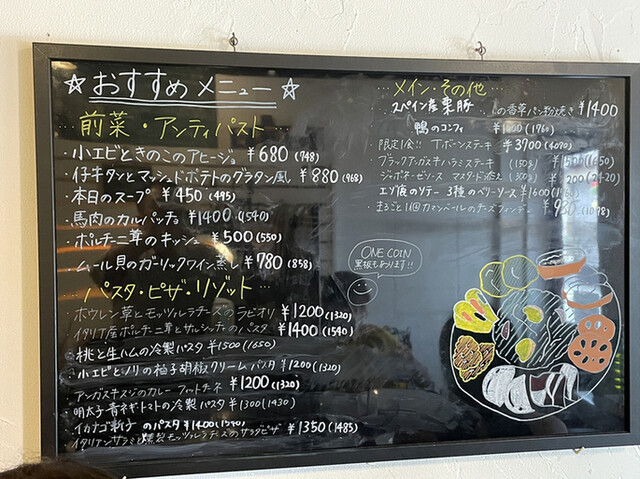 ☆おすすめメニュー☆
前菜・アンティパスト
・小エビときのこのアヒージョ ¥680 (748)
・仔牛タンとマッシュドポテトのグラタン風 ¥880 (968)
・本日のスープ ¥450 (495)
・馬肉のカルパッチョ ¥1400 (1540)
・ポルチーニ茸のキッシュ ¥500 (550)
・ムール貝のガーリックワイン蒸し ¥780 (858)
パスタ・ピザ・リゾット
・ホウレン草とモッツァレラチーズのラビオリ ¥1200 (1320)
・イタリア産ポルチーニ茸とサルシッチャのパスタ ¥1400 (1540)
桃と生ハムの冷製パスタ ¥1500 (1650)
・小エビとノリの柚子胡椒クリームパスタ ¥1200 (1320)
・アンガス牛スジのカレーフィットチーネ ¥1200 (1320)
・明太子青ネギトマトの冷製パスタ ¥1300 (1430)
・イカナゴ新子のパスタ ¥1400 (1540)
・イタリアンサラミと燻製モッツァレラチーズのサラダピザ ¥1350 (1485)
メイン・その他
スペイン産栗豚の香草パン粉焼き ¥1400
鴨のコンフィ (1760)
・限定1食!! Tボーンステーキ ¥3700 (4070)
ブラックアンガス牛ハラミステーキ (150g) (1650)
マスタード添え
・エゾ鹿のソテー 3種のベリーソース ¥1600
・まるごと1個カマンベールのチーズフォンデュ
ONE COIN
黒板もあります!!